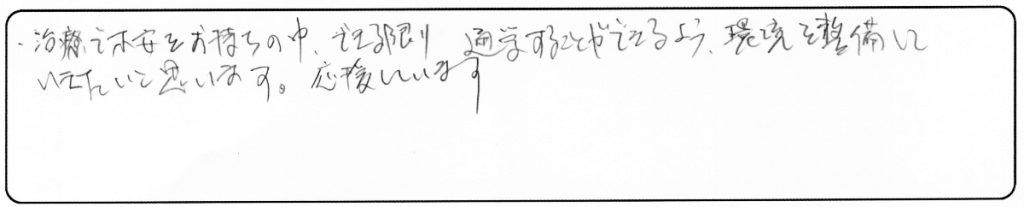 ・治療で不安をお持ちの中、できる限り 通学することができるよう、環境を整備して
いきたいと思います。応援しています